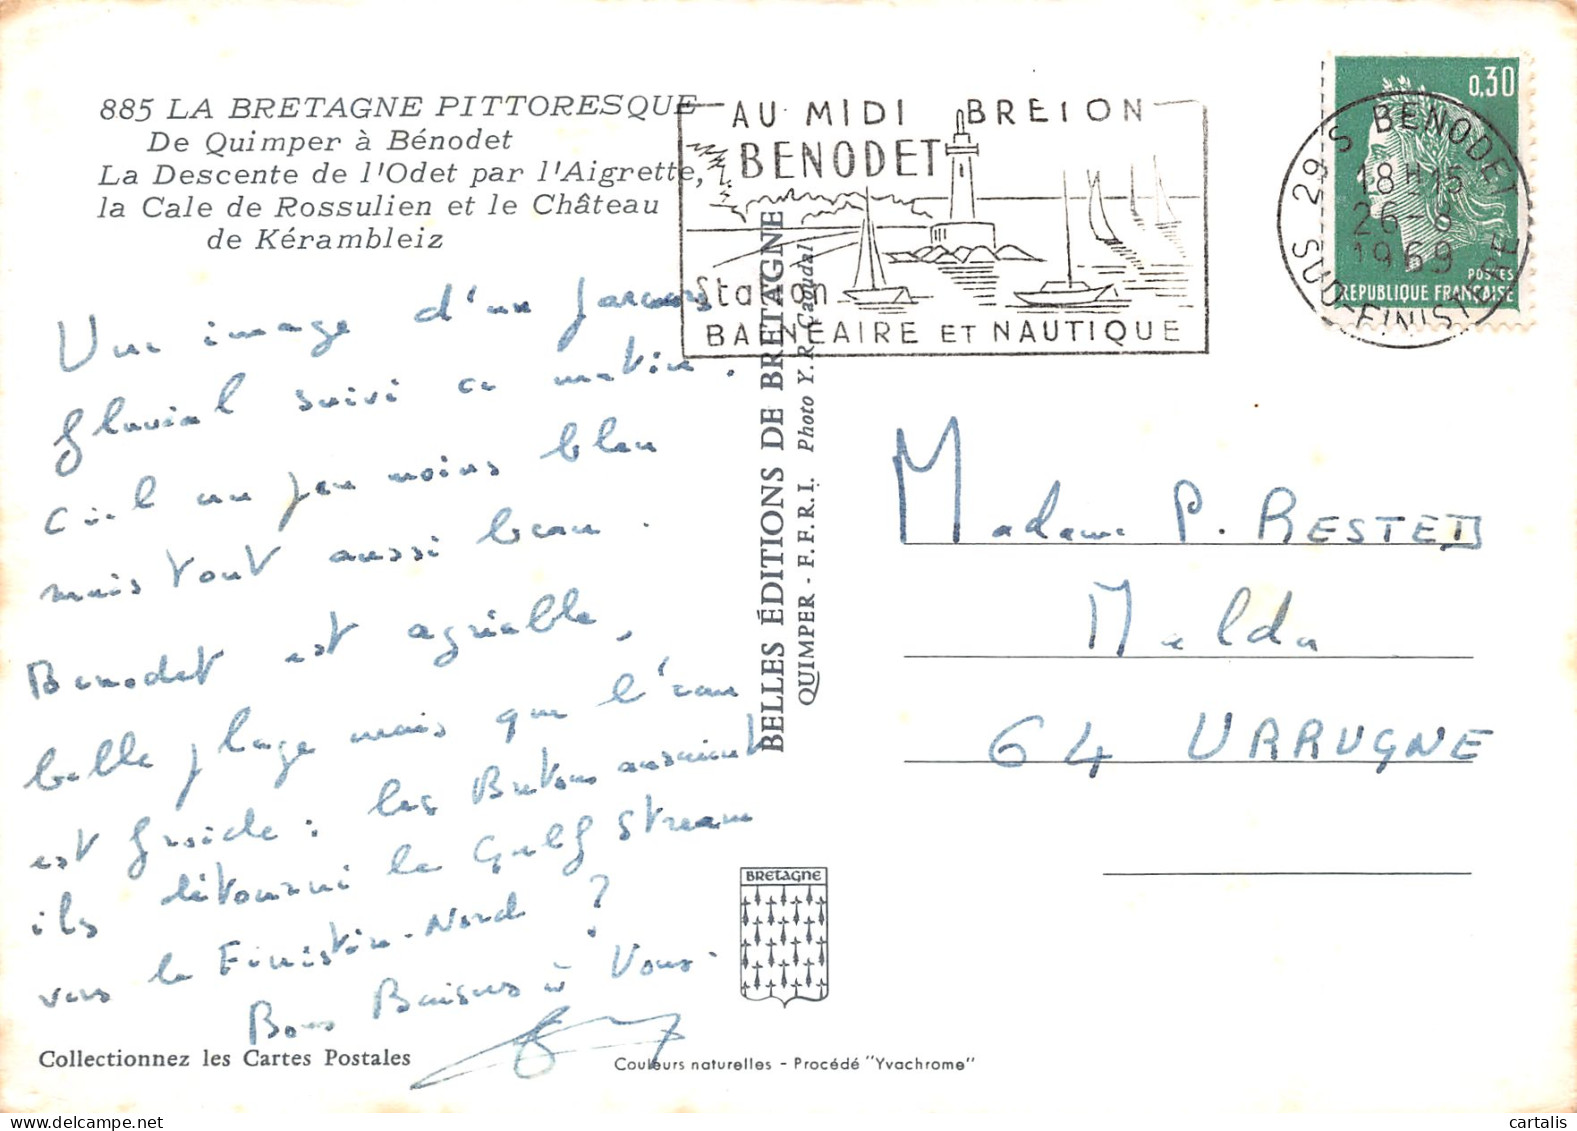 885 LA BRETAGNE PITTORESQUE
De Quimper à Bénodet
La Descente de l'Odet par l'Aigrette,
la Cale de Rossulien et le Château
de Kérambleiz
AU MIDI BRETON
BENODET
Station
BALNEAIRE ET NAUTIQUE
0,30
POSTES
REPUBLIQUE FRANÇAISE
29 S BENODET
18 H 15
26-8
1969
SUD-FINISTERE
Une image d'un parcours
fluvial suivi ce matin.
Ciel un peu moins bleu
mais tout aussi beau.
Benodet est agréable,
belle plage mais que l'eau
est froide : les Bretons auraient
ils détourné le Gulf Stream
vers le Finistère-Nord ?
Bons Baisers à Vous.
BELLES ÉDITIONS DE BRETAGNE
QUIMPER - F.F.R.I. Photo Y.R. Caoudal
Madame P. RESTET
Melda
64 URRUGNE
BRETAGNE
Collectionnez les Cartes Postales
Couleurs naturelles - Procédé "Yvachrome"
cartalis
www.delcampe.net